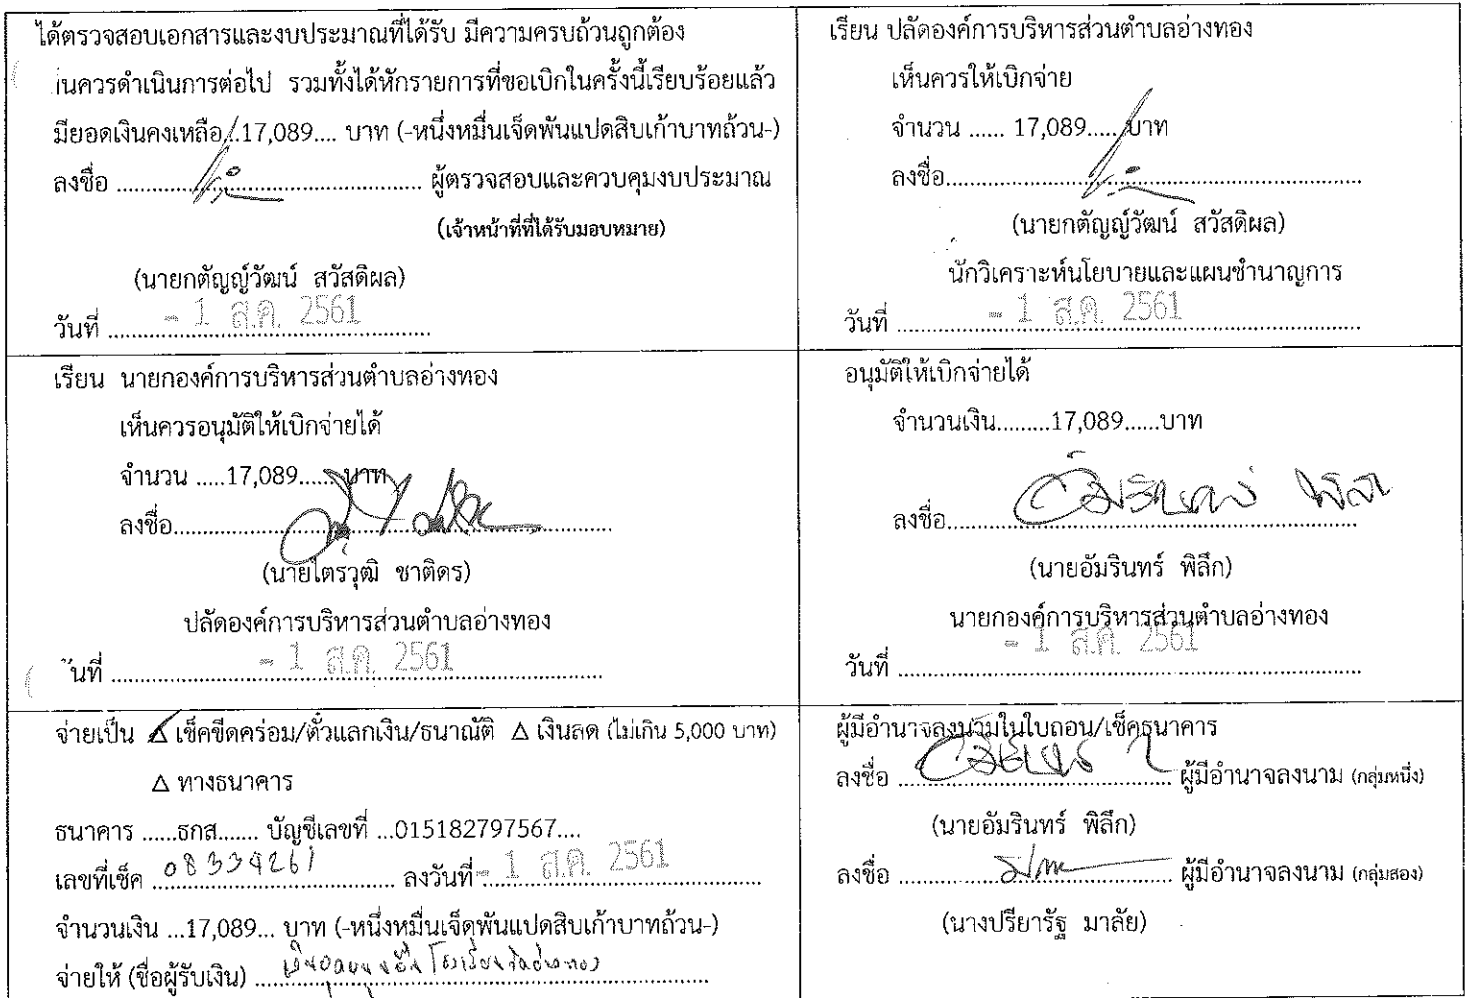 ได้ตรวจสอบเอกสารและงบประมาณที่ได้รับ มีความครบถ้วนถูกต้อง
นควรดำเนินการต่อไป รวมทั้งได้หักรายการที่ขอเบิกในครั้งนี้เรียบร้อยแล้ว
มียอดเงินคงเหลือ...17,089.... บาท (-หนึ่งหมื่นเจ็ดพันแปดสิบเก้าบาทถ้วน-)
ลงชื่อ ........................................ ผู้ตรวจสอบและควบคุมงบประมาณ
(เจ้าหน้าที่ที่ได้รับมอบหมาย)
(นายกตัญญ์วัฒน์ สวัสดิผล)
วันที่ - 1 ส.ค. 2561
เรียน ปลัดองค์การบริหารส่วนตำบลอ่างทอง
เห็นควรให้เบิกจ่าย
จำนวน ...... 17,089..... บาท
ลงชื่อ........................................
(นายกตัญญ์วัฒน์ สวัสดิผล)
นักวิเคราะห์นโยบายและแผนชำนาญการ
วันที่ - 1 ส.ค. 2561
เรียน นายกองค์การบริหารส่วนตำบลอ่างทอง
เห็นควรอนุมัติให้เบิกจ่ายได้
จำนวน .....17,089...... บาท
ลงชื่อ........................................
(นายไตรวุฒิ ชาติดร)
ปลัดองค์การบริหารส่วนตำบลอ่างทอง
ันที่ - 1 ส.ค. 2561
อนุมัติให้เบิกจ่ายได้
จำนวนเงิน.........17,089......บาท
ลงชื่อ........................................
(นายอัมรินทร์ พิลึก)
นายกองค์การบริหารส่วนตำบลอ่างทอง
วันที่ - 1 ส.ค. 2561
จ่ายเป็น Δ เช็คขีดคร่อม/ตั๋วแลกเงิน/ธนาณัติ Δ เงินสด (ไม่เกิน 5,000 บาท)
Δ ทางธนาคาร
ธนาคาร ......ธกส....... บัญชีเลขที่ ...015182797567....
เลขที่เช็ค 08334261 ลงวันที่ - 1 ส.ค. 2561
จำนวนเงิน ...17,089... บาท (-หนึ่งหมื่นเจ็ดพันแปดสิบเก้าบาทถ้วน-)
จ่ายให้ (ชื่อผู้รับเงิน) โรงเรียนวัดอ่างทอง
ผู้มีอำนาจลงนามในใบถอน/เช็คธนาคาร
ลงชื่อ ........................................ ผู้มีอำนาจลงนาม (กลุ่มหนึ่ง)
(นายอัมรินทร์ พิลึก)
ลงชื่อ ........................................ ผู้มีอำนาจลงนาม (กลุ่มสอง)
(นางปรียารัฐ มาลัย)